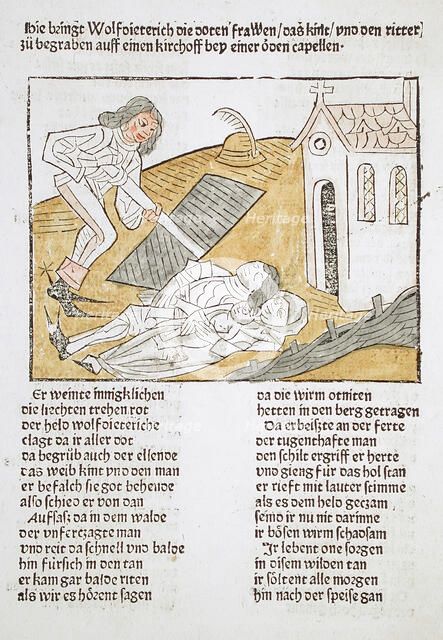 Hie bringt Wolfdieterich die doten frawen/das kint/vnd den ritter/
zů begraben auff einen kirchoff bey einer öden capellen.
Er weinte innigklichen
die liechten trehen rot
der held wolfdieteriche
clagt da ir aller dot
da begrůb auch der ellende
das weib kint vnd den man
er befalch sie got behende
also schied er von dan
Auffsaß da in dem walde
der vnferczagte man
vnd reit da schnell vnd balde
hin fürsich in den tan
er kam gar balde riten
als wir es hörent sagen
da die wirm otniten
hetten in den berg getragen
Da erbeißte an der ferte
der tugenthafte man
den schilt ergriff er herte
vnd gieng für das hol stan
er rieft mit lauter stimme
als es dem held geczam
seind ir nu nit darinne
ir bösen wirm schadsam
Ir lebent one sorgen
in disem wilden tan
ir söltent alle morgen
hin nach der speise gan
Heritage